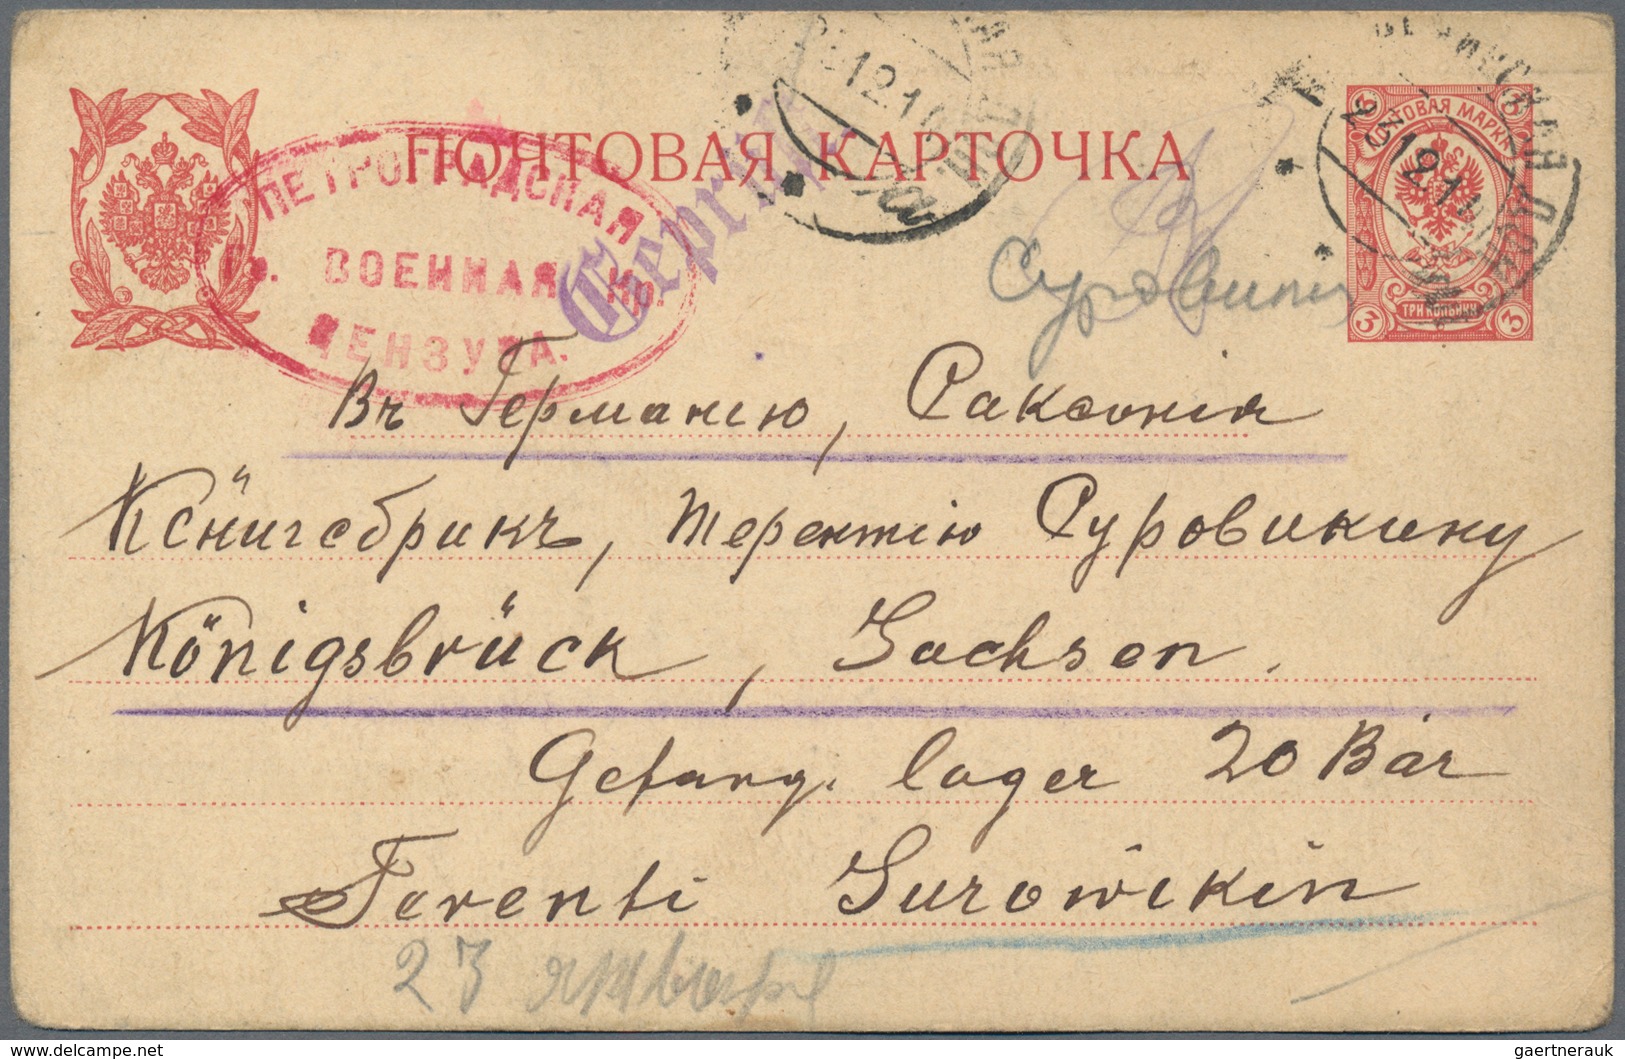 ПОЧТОВАЯ КАРТОЧКА
ПОЧТОВАЯ МАРКА
3 3
3 ТРИ КОПѢЙКИ 3
ПЕТРОГРАДСКАЯ
ВОЕННАЯ
ЦЕНЗУРА.
23 12 1
12 1
Въ Германію, Саксонія
Кёнигсбрикъ, Терентію Суровикину
Königsbrück, Sachsen.
Gefang. lager 20 Bar
Terenti Surowikin
23 января
delcampe.net
gaertnerauk